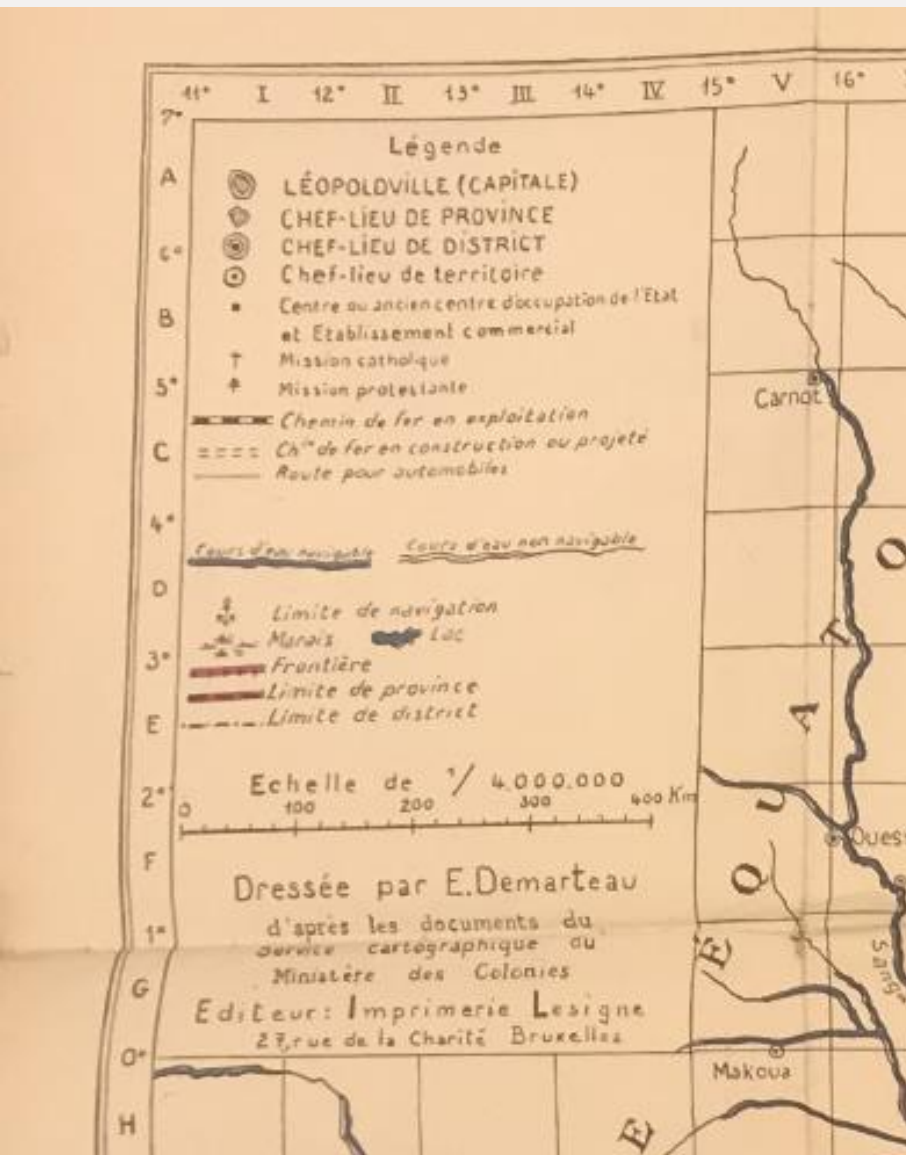 11° I 12° II 13° III 14° IV 15° V 16°
7°
A
6°
B
5°
C
4°
D
3°
E
2°
F
1°
G
0°
H
Légende
LÉOPOLDVILLE (CAPITALE)
CHEF-LIEU DE PROVINCE
CHEF-LIEU DE DISTRICT
Chef-lieu de territoire
Centre ou ancien centre d'occupation de l'Etat
et Etablissement commercial
Mission catholique
Mission protestante
Chemin de fer en exploitation
Ch.in de fer en construction ou projeté
Route pour automobiles
Cours d'eau navigable Cours d'eau non navigable
Limite de navigation
Marais Lac
Frontière
Limite de province
Limite de district
Echelle de 1/4.000.000
0 100 200 300 400 Km
Dressée par E.Demarteau
d'après les documents du
service cartographique du
Ministère des Colonies
Editeur: Imprimerie Lesigne
27, rue de la Charité Bruxelles
Carnot
O
T
A
U
Q
É
E
Ouess
Sanga
Makoua